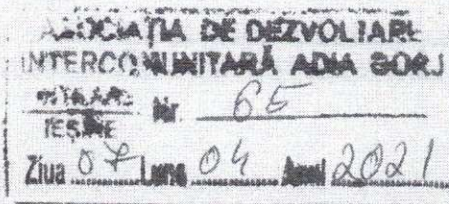 ASOCIAȚIA DE DEZVOLTARE
INTERCOMUNITARĂ ADIA GORJ
INTRARE
IEȘIRE Nr. 65
Ziua 07 Luna 04 Anul 2021